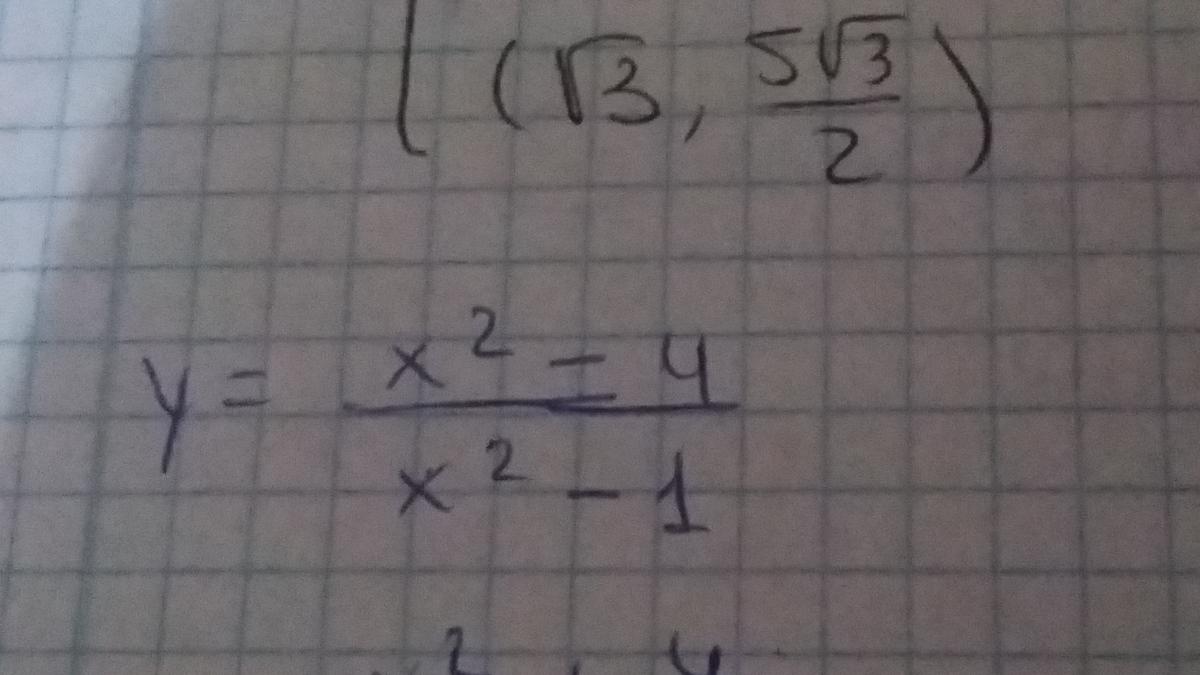 (√3, 5√3/2)
y = (x² - 4)/(x² - 1)